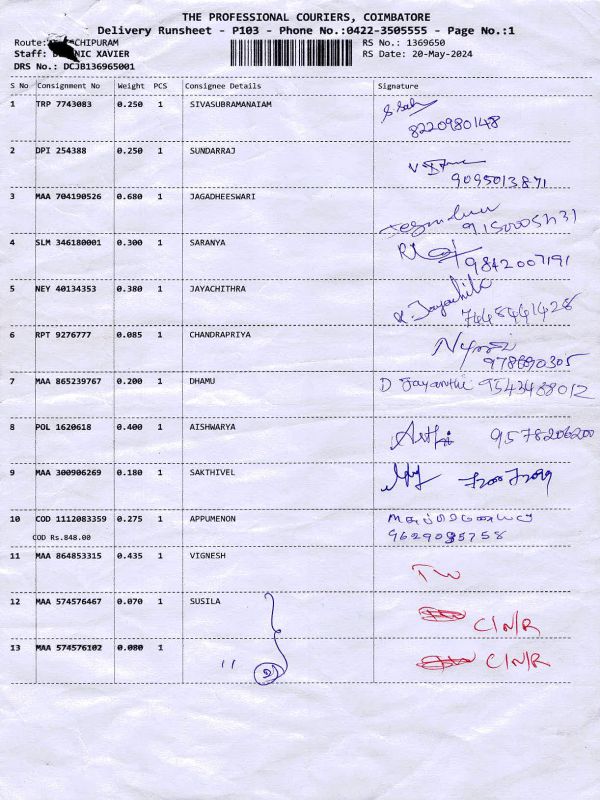 THE PROFESSIONAL COURIERS, COIMBATORE
Delivery Runsheet - P103 - Phone No.:0422-3505555 - Page No.:1
Route: CHIPURAM RS No.: 1369650
Staff: NIC XAVIER RS Date: 20-May-2024
DRS No.: DCJB136965001
S No Consignment No Weight PCS Consignee Details Signature
1 TRP 7743083 0.250 1 SIVASUBRAMANAIAM
8220980148
2 DPI 254388 0.250 1 SUNDARRAJ
9095013871
3 MAA 704190526 0.680 1 JAGADHEESWARI
4 SLM 346180001 0.300 1 SARANYA
9842007191
5 NEY 40134353 0.380 1 JAYACHITHRA
K. Jayachitla
7448441428
6 RPT 9276777 0.085 1 CHANDRAPRIYA
7 MAA 865239767 0.200 1 DHAMU D Jayanthi 9543488012
8 POL 1620618 0.400 1 AISHWARYA 9578206200
9 MAA 300906269 0.180 1 SAKTHIVEL
10 COD 1112083359 0.275 1 APPUMENON
COD Rs.848.00
11 MAA 864853315 0.435 1 VIGNESH
12 MAA 574576467 0.070 1 SUSILA C/N/R
13 MAA 574576102 0.080 1 " C/N/R